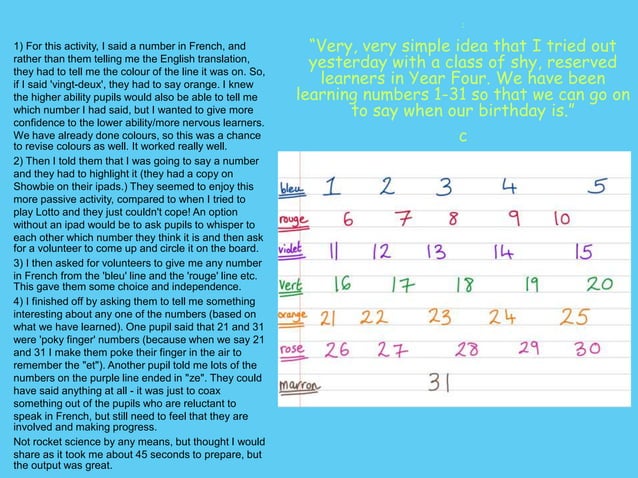 1) For this activity, I said a number in French, and
rather than them telling me the English translation,
they had to tell me the colour of the line it was on. So,
if I said 'vingt-deux', they had to say orange. I knew
the higher ability pupils would also be able to tell me
which number I had said, but I wanted to give more
confidence to the lower ability/more nervous learners.
We have already done colours, so this was a chance
to revise colours as well. It worked really well.
2) Then I told them that I was going to say a number
and they had to highlight it (they had a copy on
Showbie on their ipads.) They seemed to enjoy this
more passive activity, compared to when I tried to
play Lotto and they just couldn't cope! An option
without an ipad would be to ask pupils to whisper to
each other which number they think it is and then ask
for a volunteer to come up and circle it on the board.
3) I then asked for volunteers to give me any number
in French from the 'bleu' line and the 'rouge' line etc.
This gave them some choice and independence.
4) I finished off by asking them to tell me something
interesting about any one of the numbers (based on
what we have learned). One pupil said that 21 and 31
were 'poky finger' numbers (because when we say 21
and 31 I make them poke their finger in the air to
remember the "et"). Another pupil told me lots of the
numbers on the purple line ended in "ze". They could
have said anything at all - it was just to coax
something out of the pupils who are reluctant to
speak in French, but still need to feel that they are
involved and making progress.
Not rocket science by any means, but thought I would
share as it took me about 45 seconds to prepare, but
the output was great.
:
“Very, very simple idea that I tried out
yesterday with a class of shy, reserved
learners in Year Four. We have been
learning numbers 1-31 so that we can go on
to say when our birthday is.”
c
bleu 1 2 3 4 5
rouge 6 7 8 9 10
violet 11 12 13 14 15
vert 16 17 18 19 20
orange 21 22 23 24 25
rose 26 27 28 29 30
marron 31